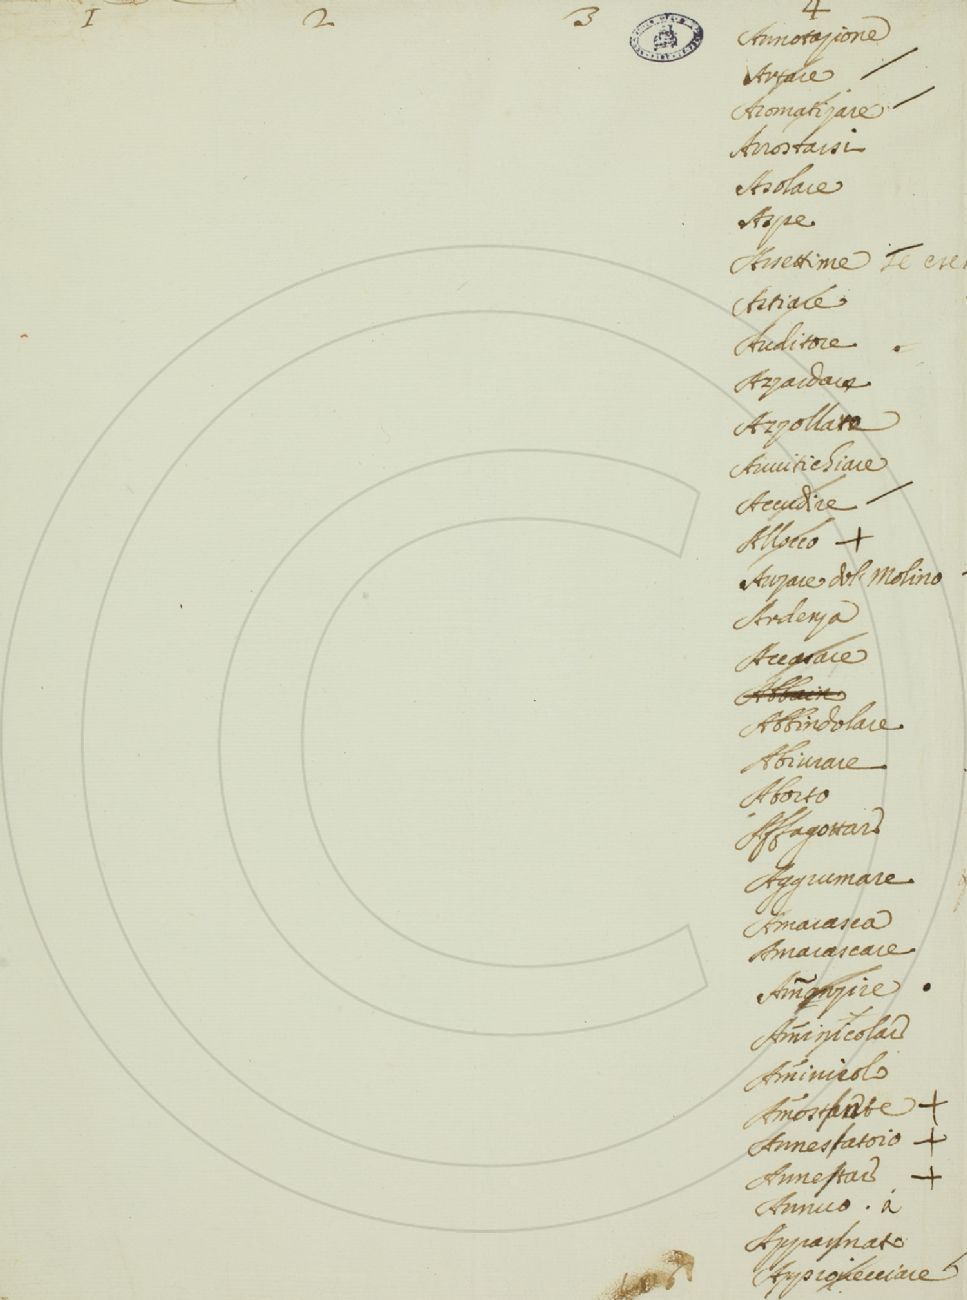 1 2 3 4
Annotazione
Artare
Aromatizare
Arrostarsi
Asolare
Aspe
Assettime
Astiare
Auditore
Azzardare
Azzollare
Avvitichiare
Accudire
Allocco +
Alzare dol Molino
Ardenza
Accasare
Abbindolare
Abiurare
Aborto
Affagottare
Aggrumare
Amarasca
Amarascare
Aminicolare
Aminicolo
Amostante +
Annestatoio +
Annestare +
Annuo . à